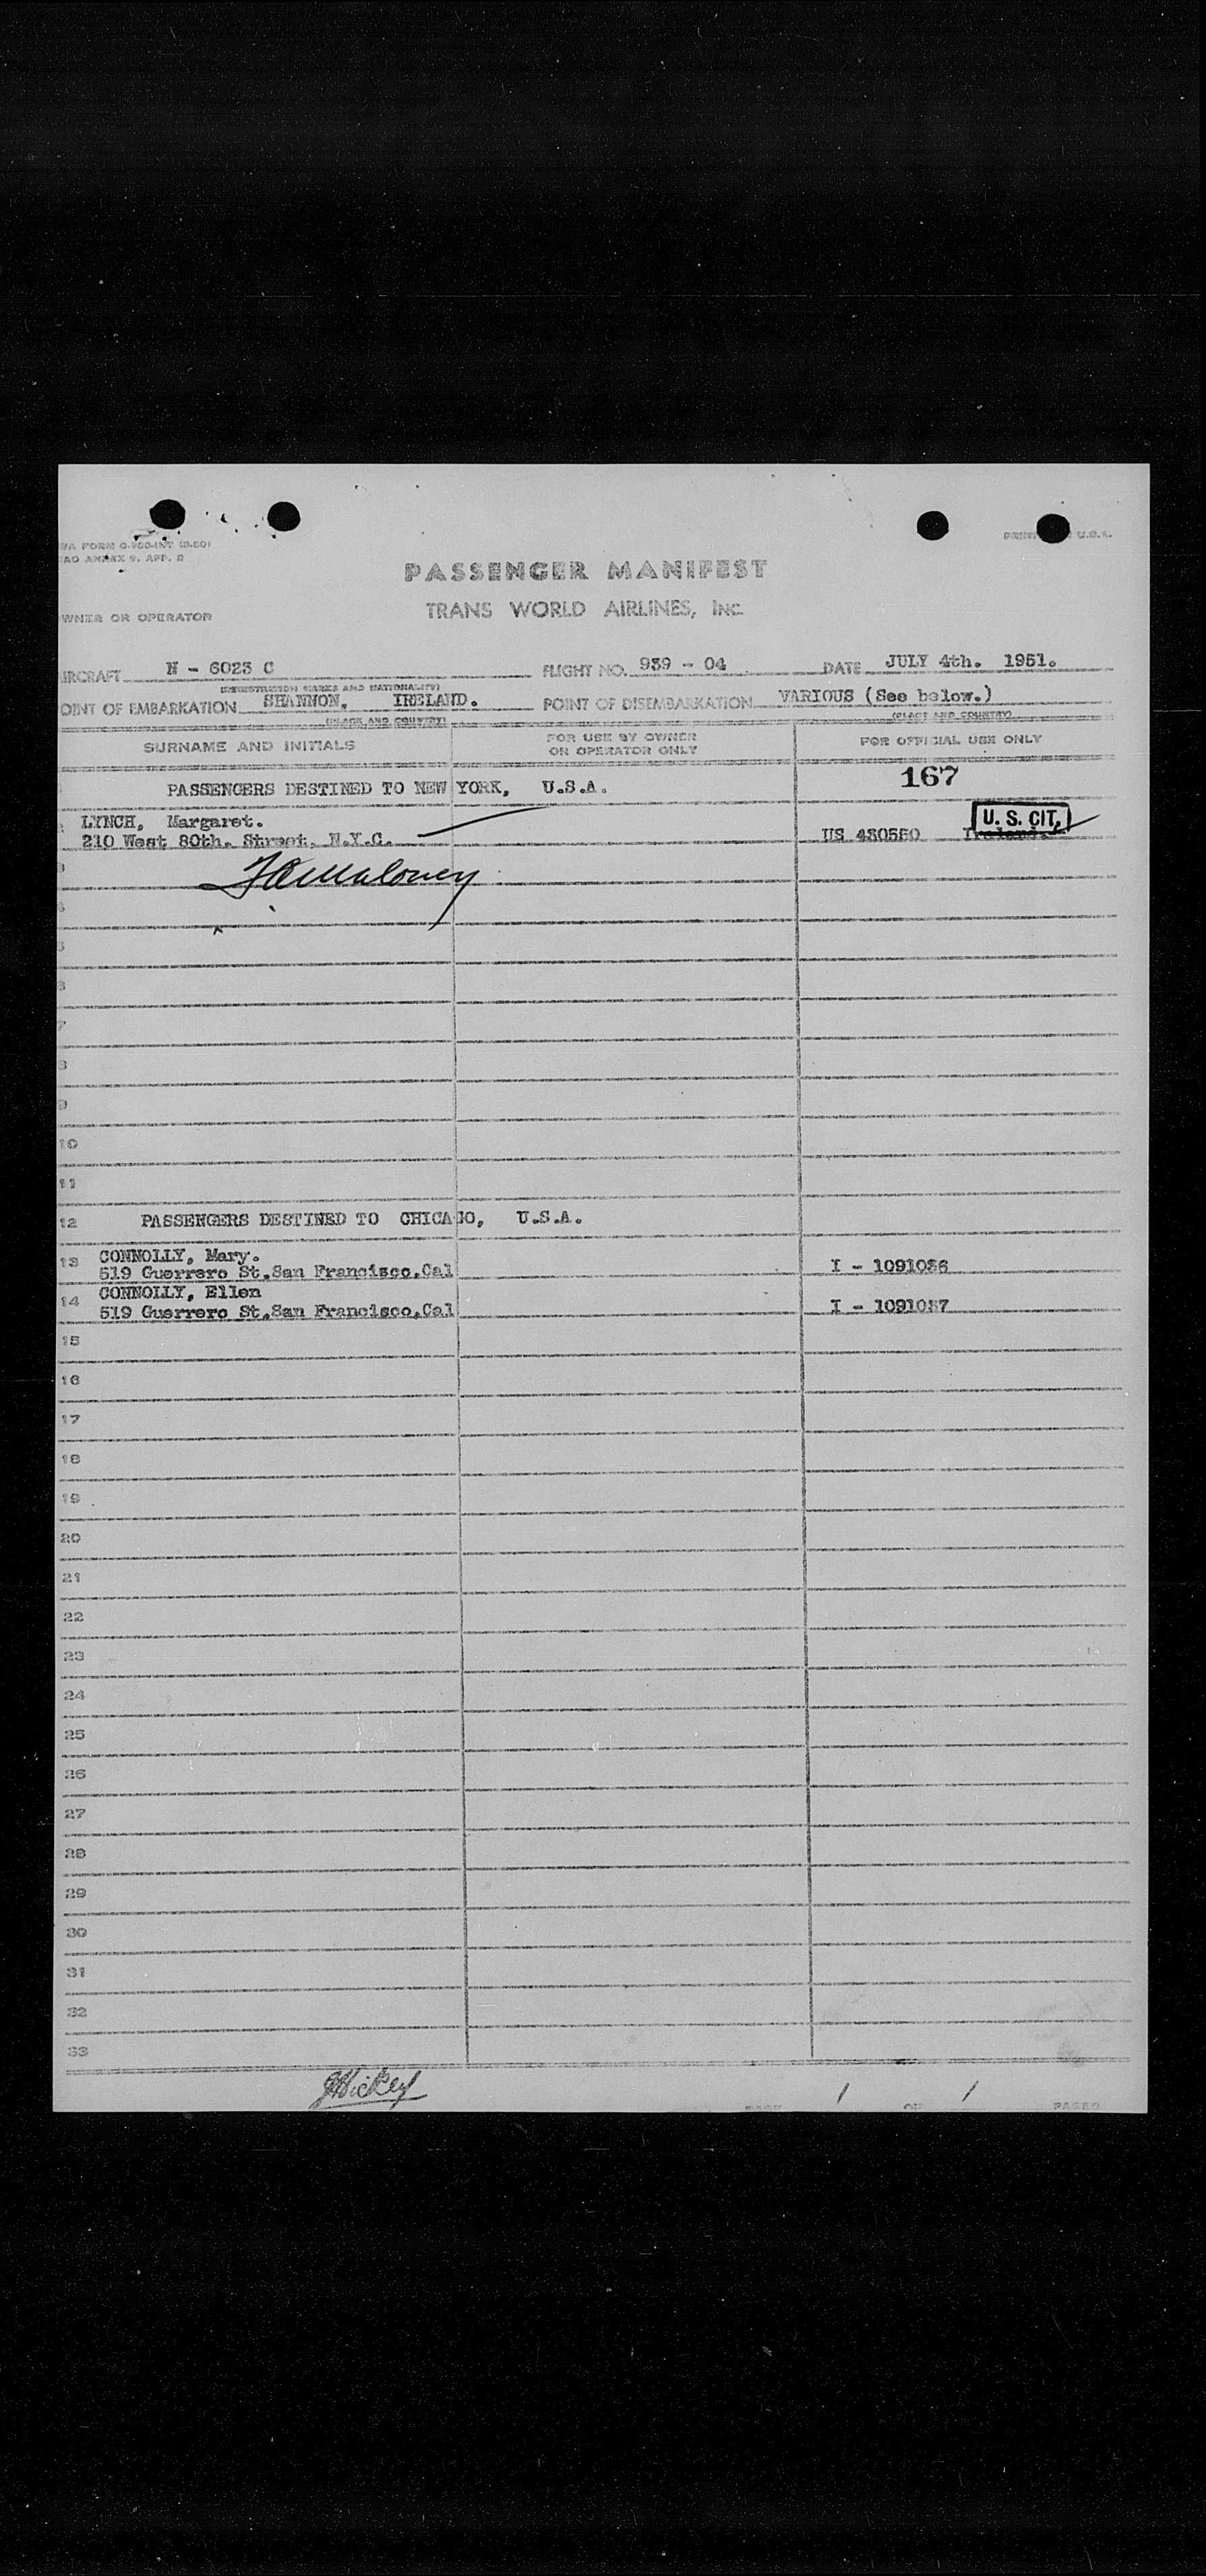 WA FORM O-900-INT (8-50)
AO ANNEX 9, APP. B
PRINTED U.S.A.
PASSENGER MANIFEST
WNER OR OPERATOR
TRANS WORLD AIRLINES, INC.
IRCRAFT N - 6023 C FLIGHT NO. 939 - 04 DATE JULY 4th. 1951.
(REGISTRATION MARKS AND NATIONALITY)
OINT OF EMBARKATION SHANNON, IRELAND. POINT OF DISEMBARKATION VARIOUS (See below.)
(PLACE AND COUNTRY) (PLACE AND COUNTRY)
SURNAME AND INITIALS FOR USE BY OWNER OR OPERATOR ONLY FOR OFFICIAL USE ONLY
167
PASSENGERS DESTINED TO NEW YORK, U.S.A.
LYNCH, Margaret. U. S. CIT.
210 West 80th. Street, N.Y.C. US 430550 Ireland.
Maloney
3
4
5
6
7
8
9
10
11
12 PASSENGERS DESTINED TO CHICAGO, U.S.A.
13 CONNOLLY, Mary.
519 Guerrero St,San Francisco,Cal I - 1091036
14 CONNOLLY, Ellen
519 Guerrero St,San Francisco,Cal I - 1091037
15
16
17
18
19
20
21
22
23
24
25
26
27
28
29
30
31
32
33
Hickey
PAGE 1 OF 1 PAGES